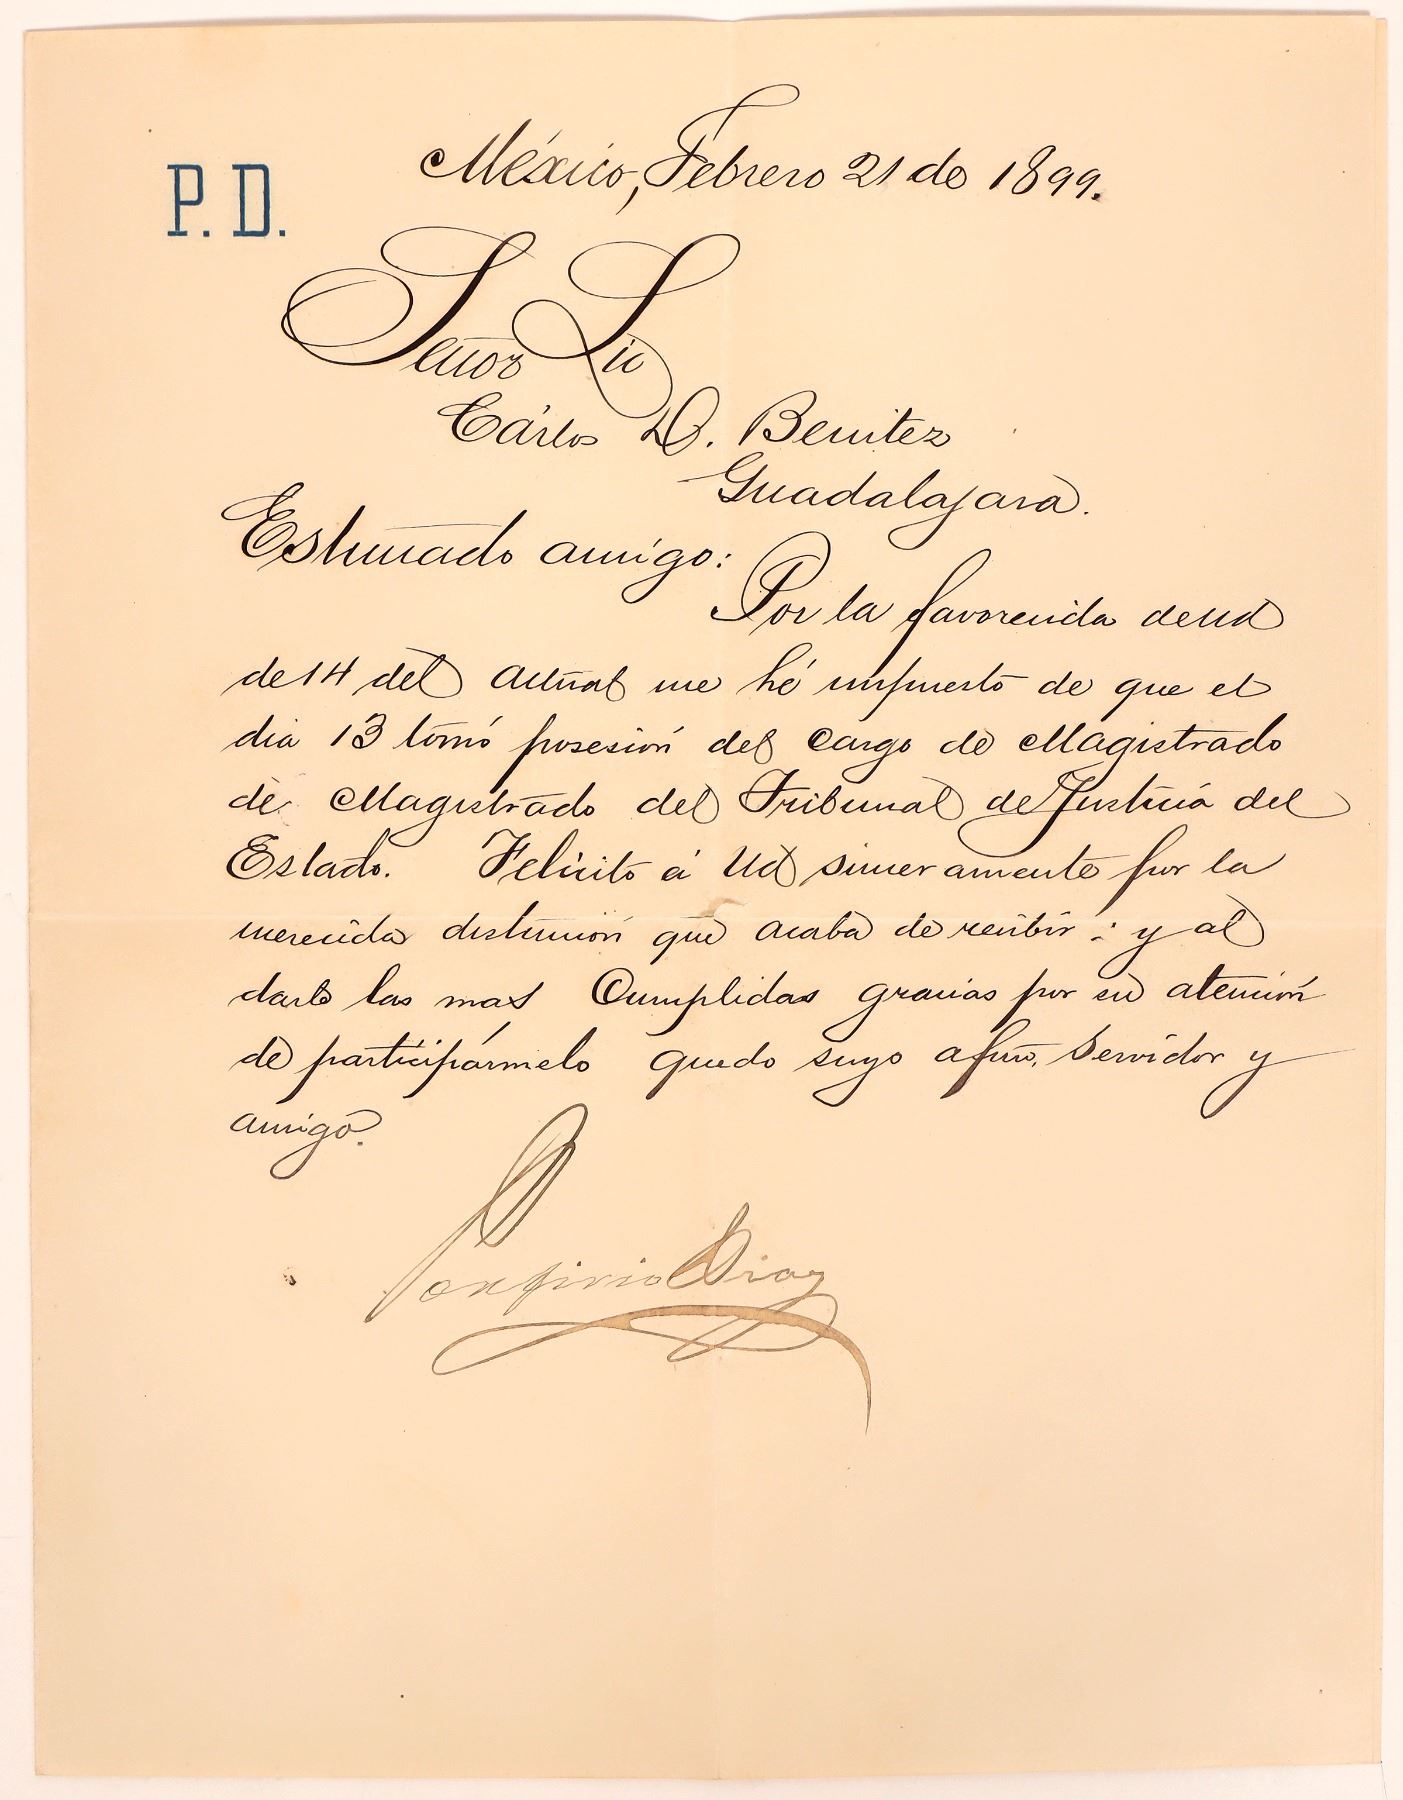 P. D.
México, Febrero 21 de 1899.
Señor Lic
Cárlos D. Benitez
Guadalajara.
Estimado amigo:
Por la favorecida de Ud
de 14 del actual me hé impuesto de que el
dia 13 tomó posesión del cargo de Magistrado
de Magistrado del Tribunal de Justicia del
Estado. Felicito á Ud sinceramente por la
merecida distinción que acaba de recibir; y al
darle las mas Cumplidas gracias por su atención
de participármelo quedo suyo afmo. Servidor y
amigo.
Porfirio Diaz